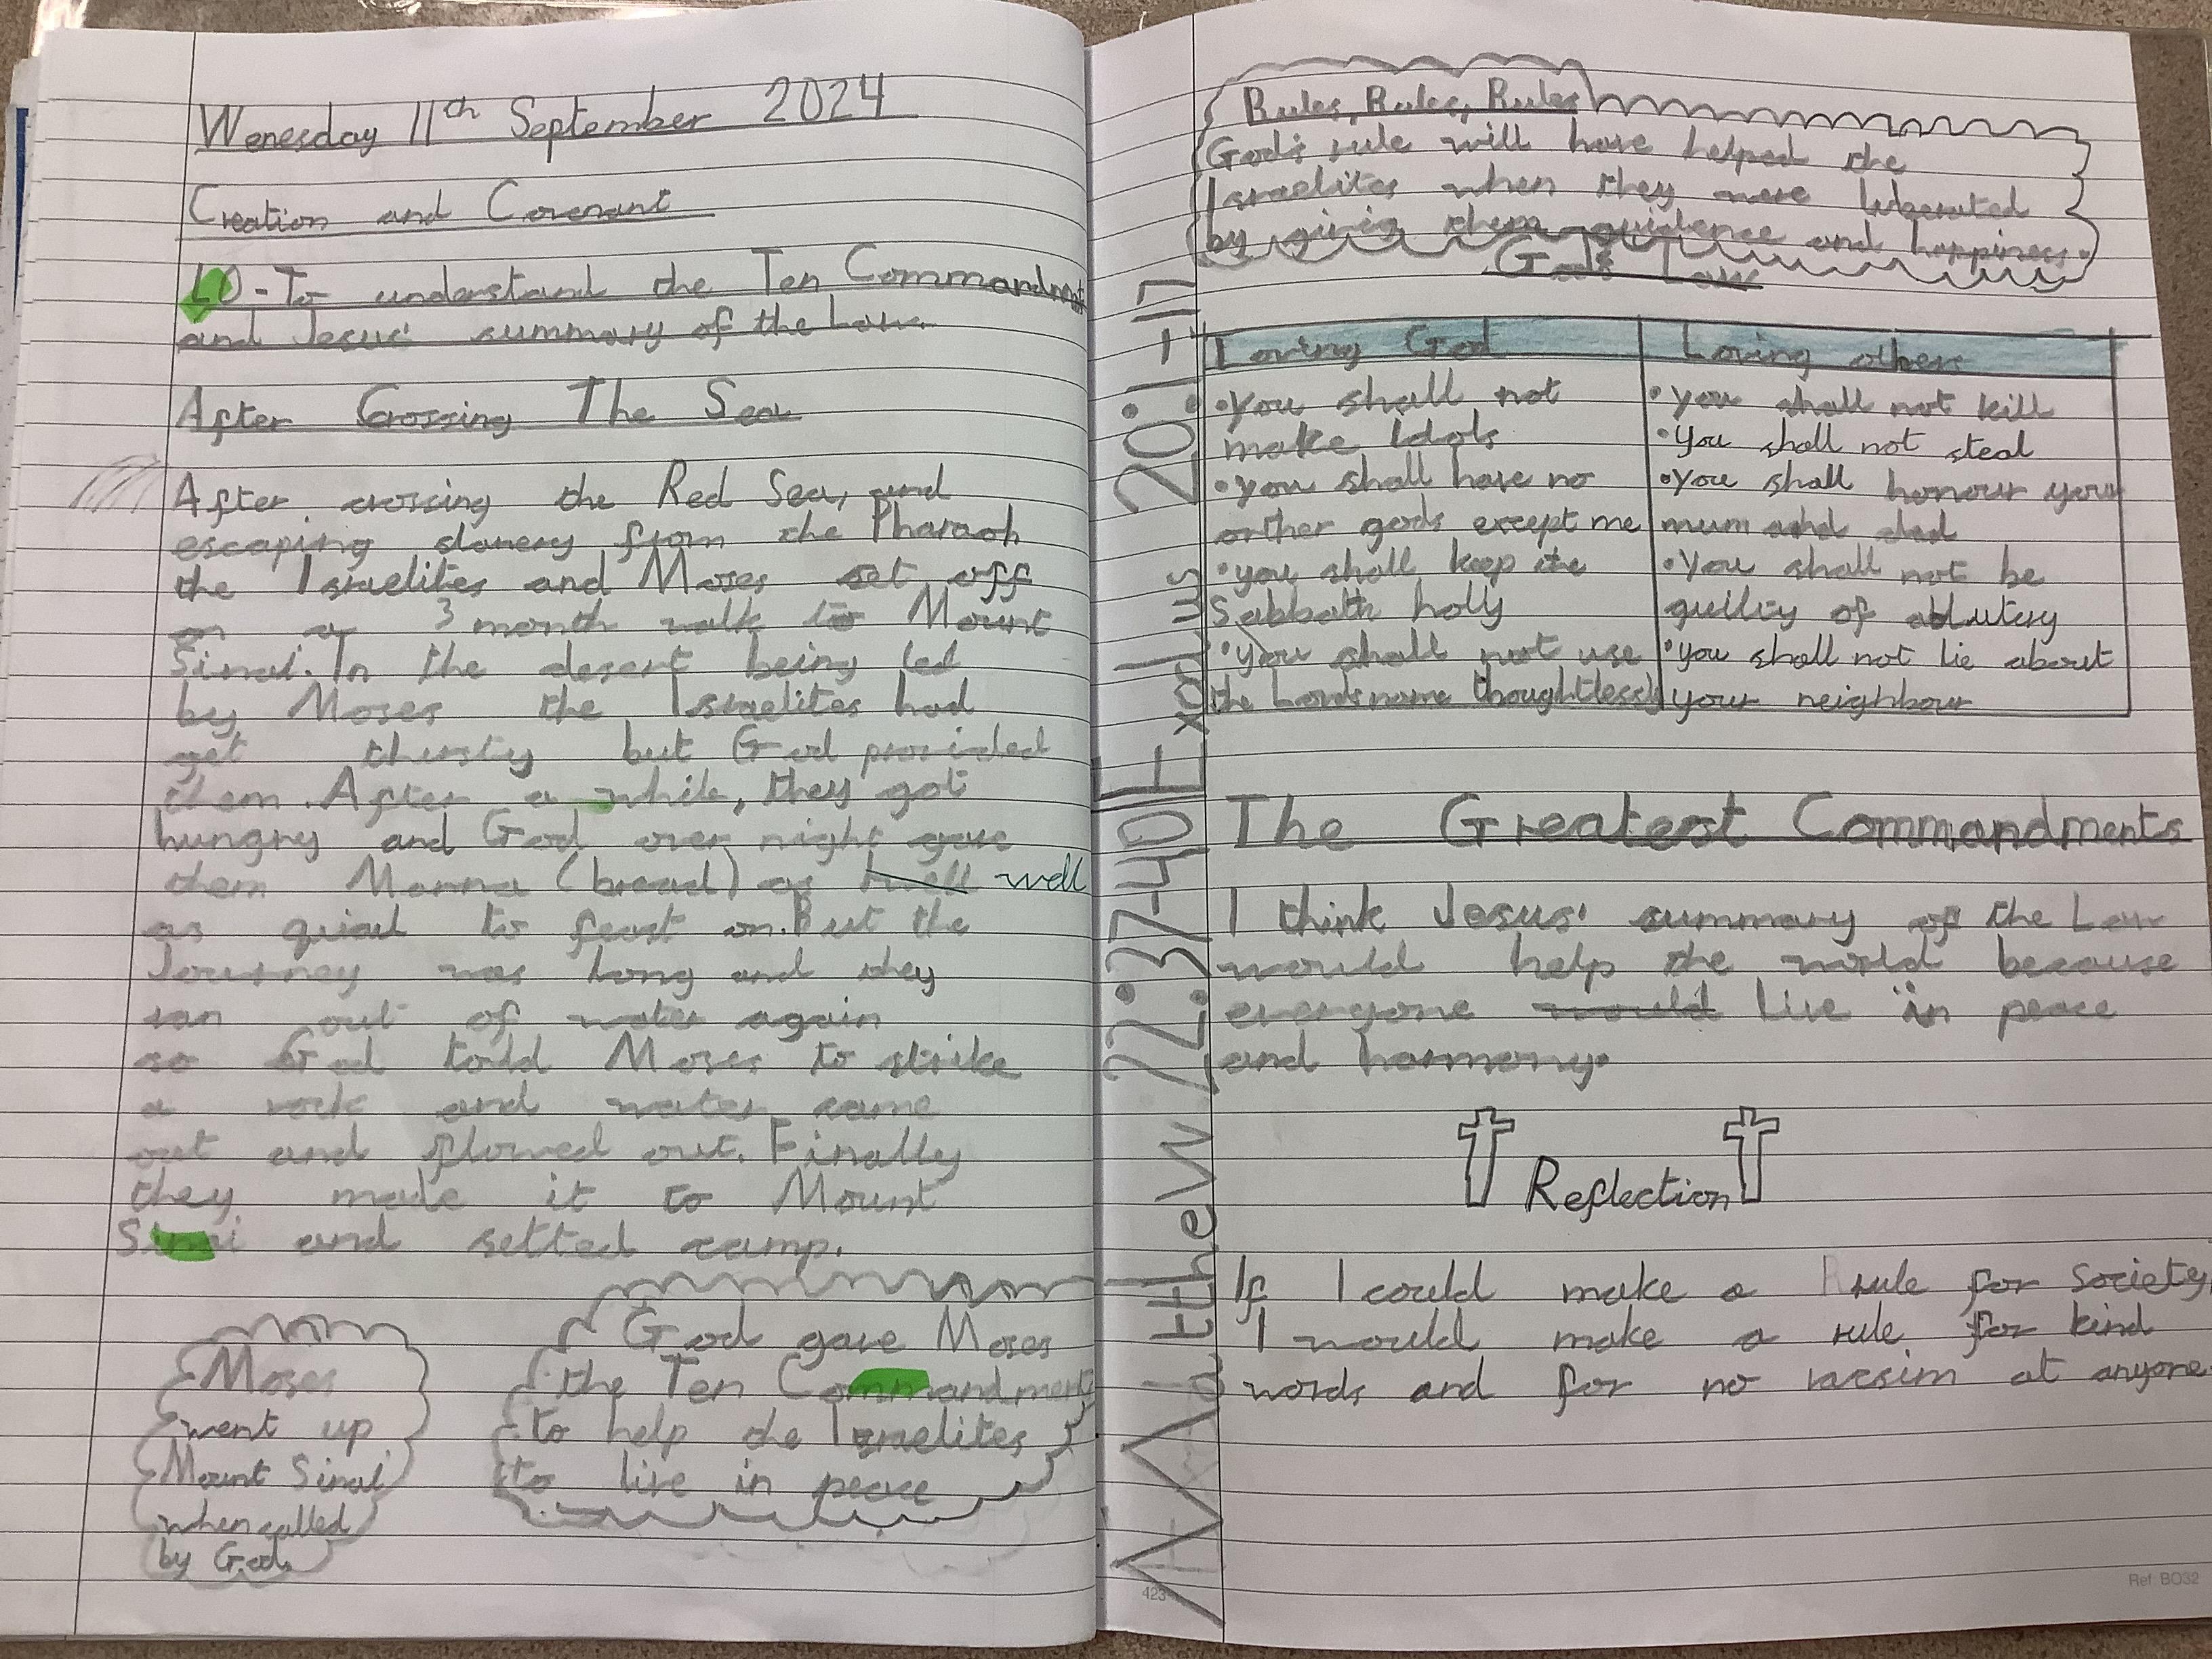 Wenesday 11th September 2024
Creation and Covenant
LO - To understand the Ten Commandment
and Jesus' summary of the Law.
After Crossing The Sea
After crossing the Red Sea, and
escaping slavery from the Pharaoh
the Israelites and Moses set off
on a 3 month walk to Mount
Sinai. In the desert being led
by Moses the Israelites had
get thirsty but God provided
them. After a while, they got
hungry and God over night gave
them Manna (bread) as well
as quial to feast on. But the
Journey was long and they
ran out of water again
so God told Moses to strike
a rock and water came
out and flowed out. Finally
they made it to Mount
Sinai and setted camp.
Moses
went up
Mount Sinai
when called
by God.
God gave Moses
the Ten Commandment
to help the Israelites
to live in peace
Matthew 22:37-40
Exodus 20:1-17
Rules, Rules, Rules
God's rule will have helped the
Israelites when they were liberated
by givig them guidence and happiness.
God's Law
Loving God
• You shall not
make Idols
• you shall have no
orther gods except me
• you shall keep the
Sabbath holy
• you shall not use
the Lords name thoughtlessly
Loving others
• you shall not kill
• you shall not steal
• you shall honour your
mum and dad
• you shall not be
guility of ablutery
• you shall not lie about
your neighbour
The Greatest Commandments
I think Jesus' summary of the Law
would help the world because
everyone would live in peace
and harmony.
Reflection
If I could make a rule for society
I would make a rule for kind
words and for no racsim at anyone
423
Ref: BO32